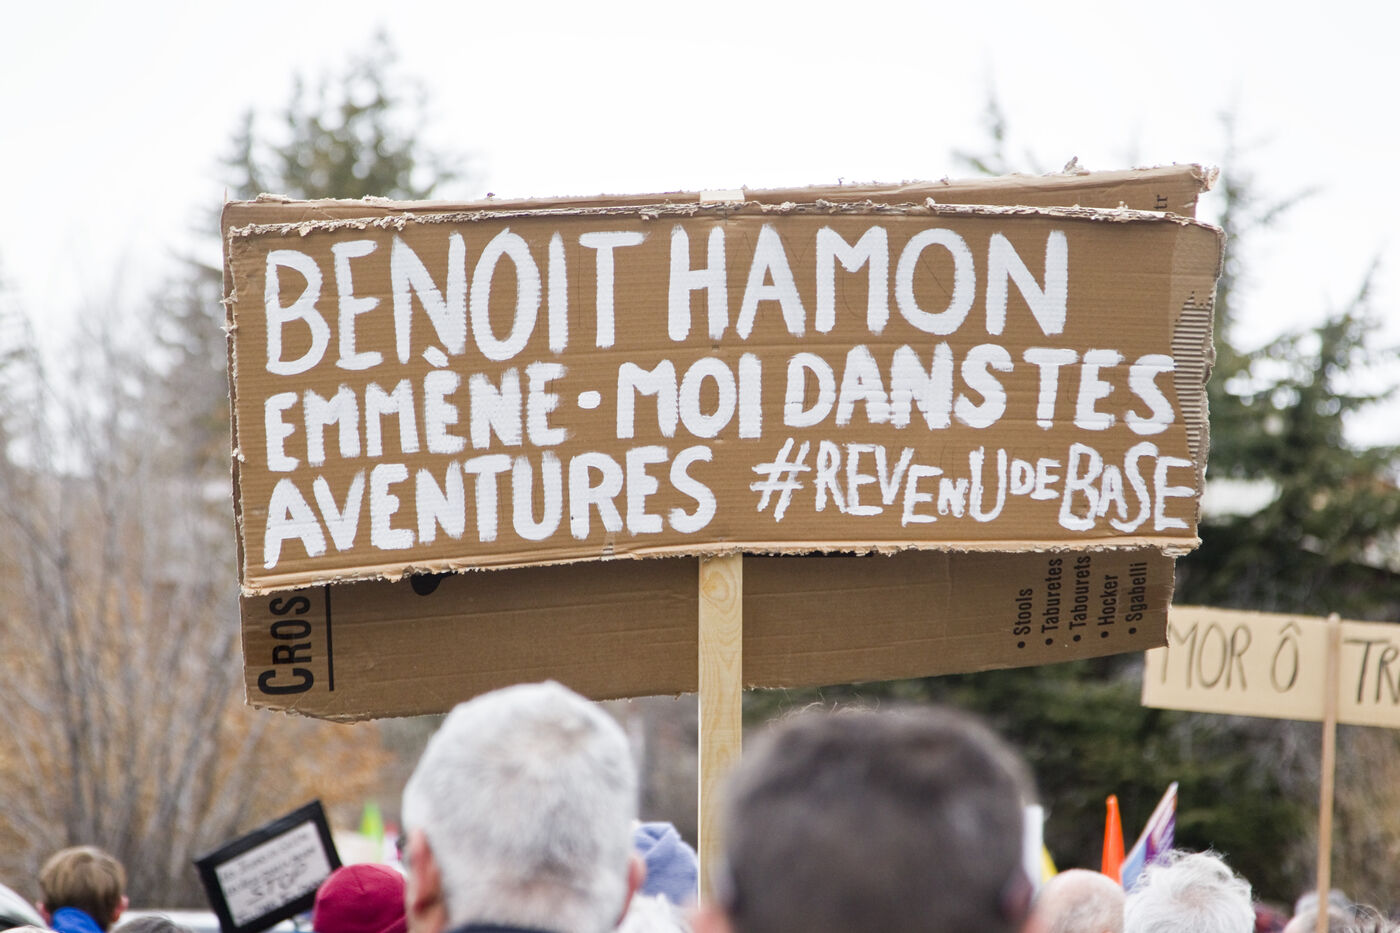 BENOIT HAMON
EMMÈNE-MOI DANS TES
AVENTURES #REVENUDEBASE
CROS
• Stools
• Taburetes
• Tabourets
• Hocker
• Sgabelli
MOR Ô TR
STOP
tr